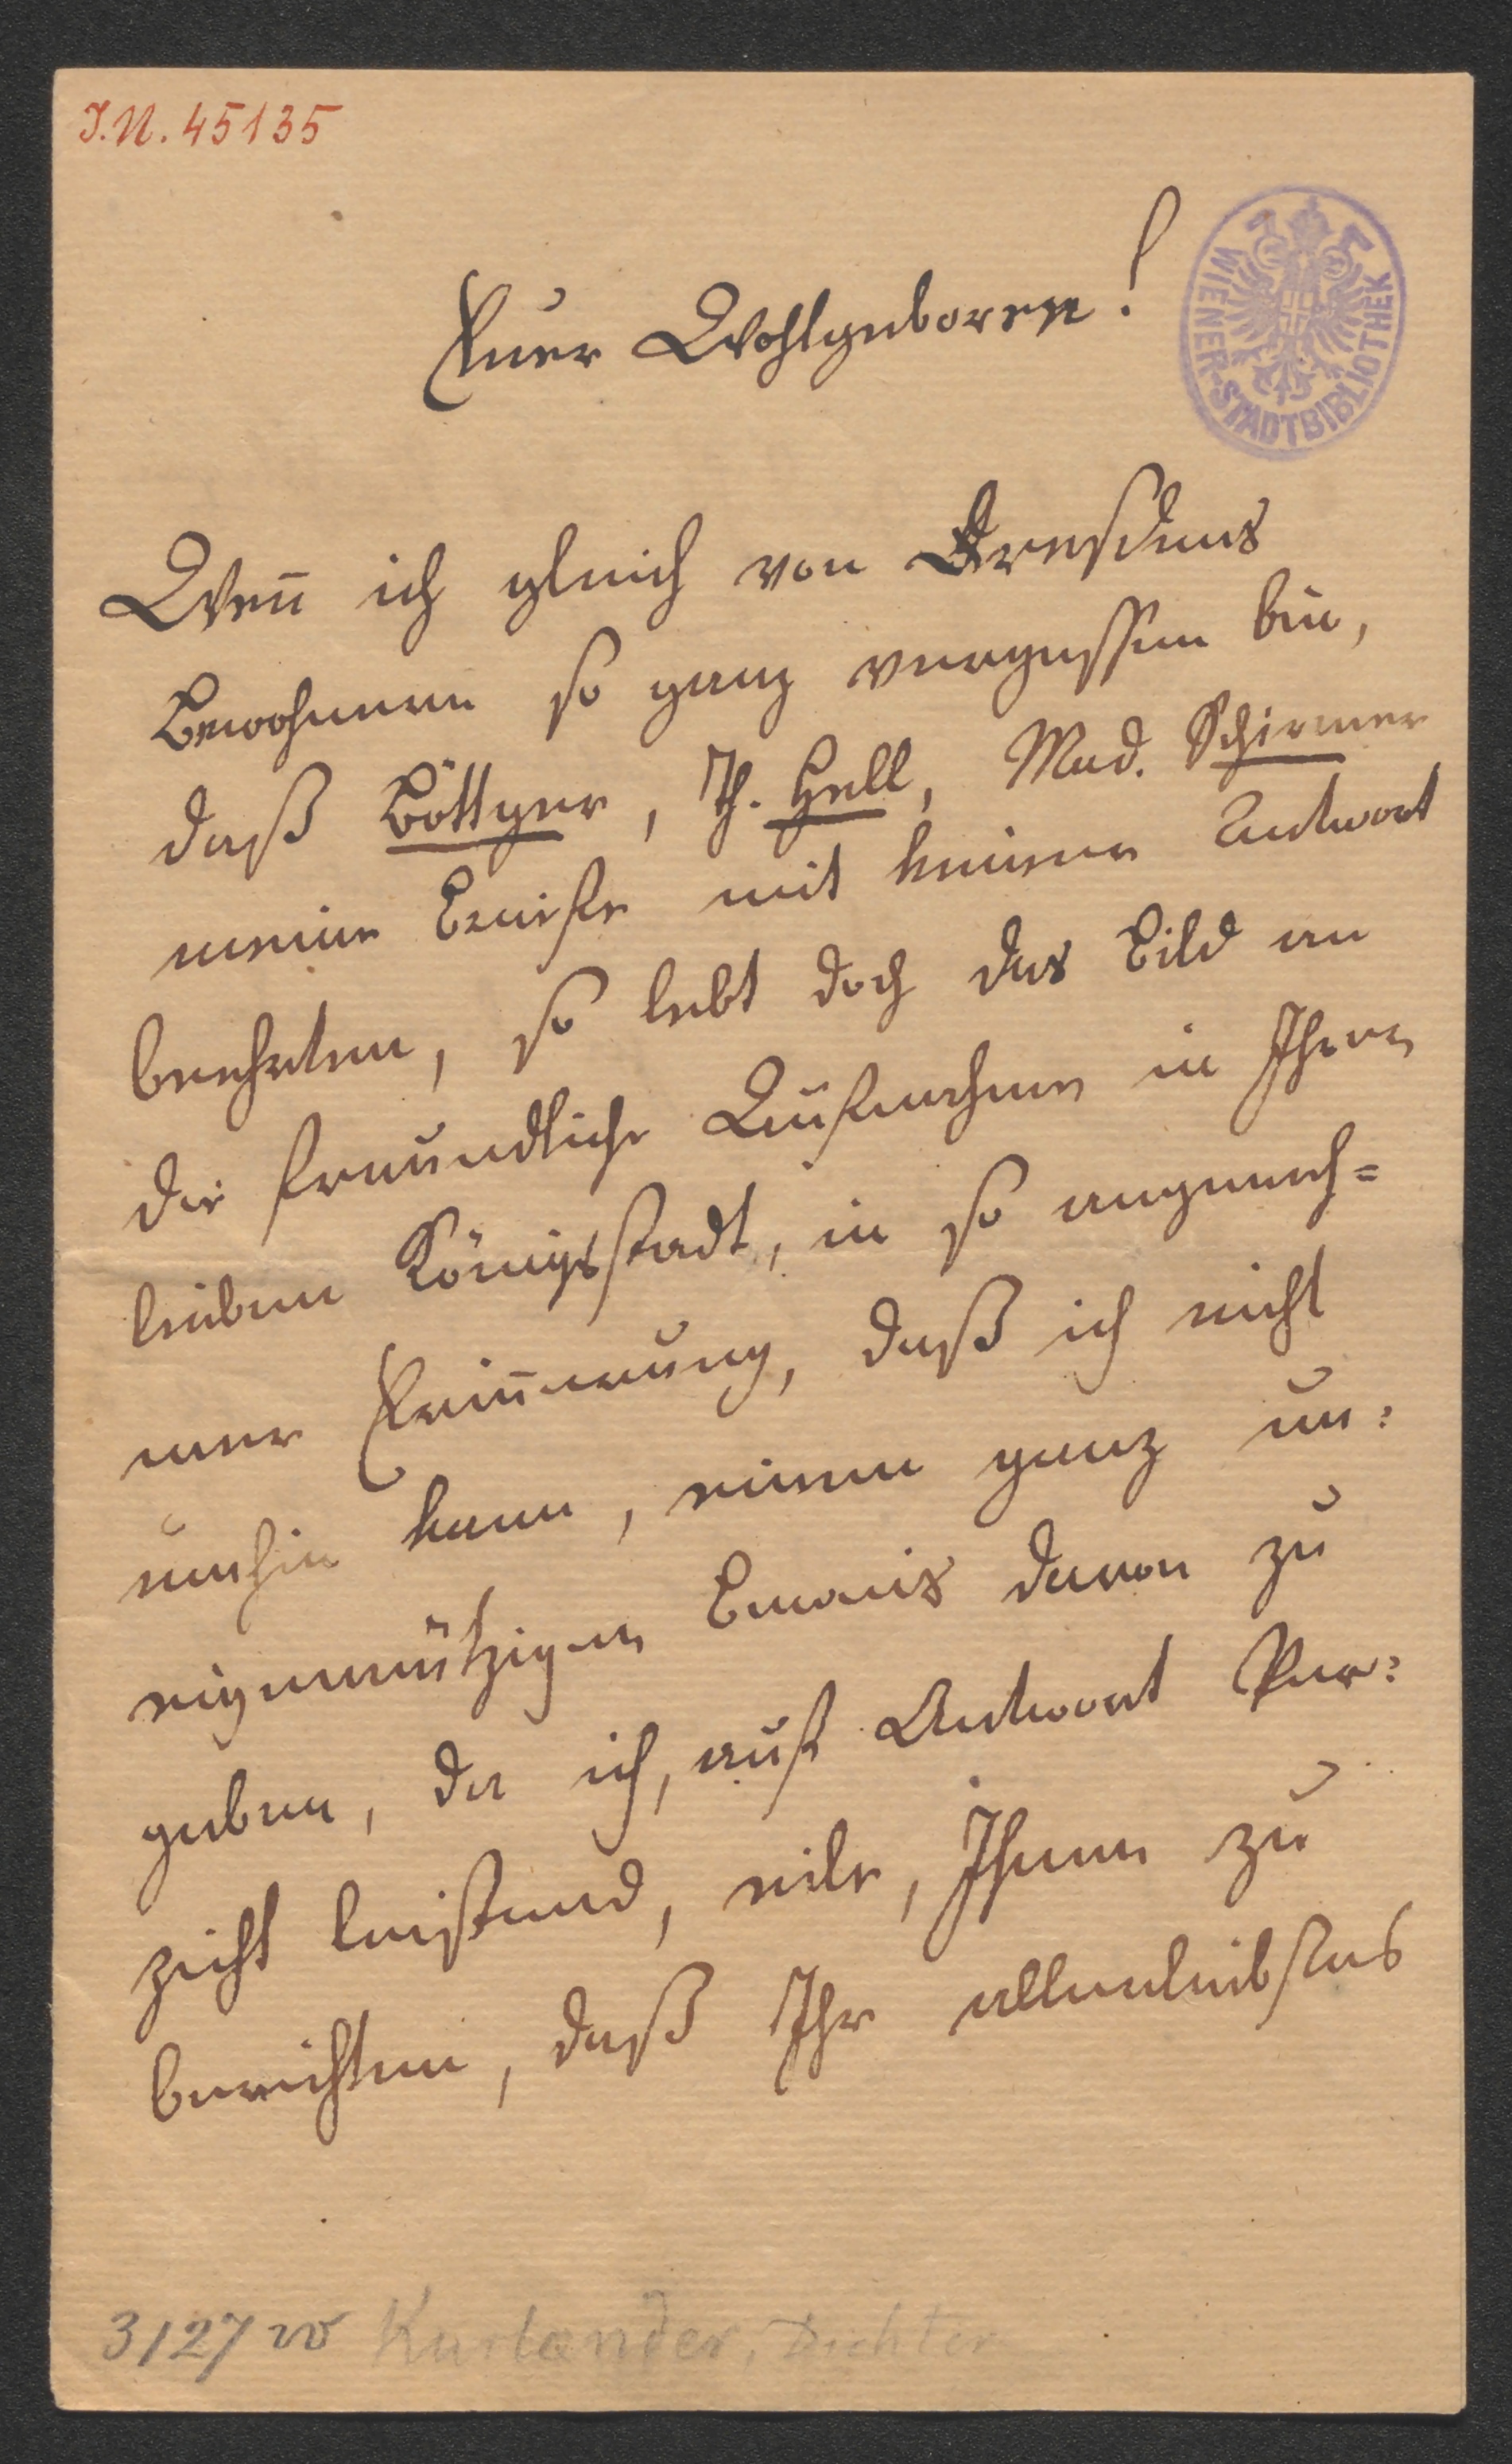 I.N. 45135
WIENER-STADTBIBLIOTHEK
Euer Wohlgeboren!
Weñ ich gleich von Dresdens
Bewohnern so ganz vergessen bin,
daß Böttger, Th. Hell, Mad. Schirmer
meine Briefe mit keiner Antwort
beehrten, so lebt doch das Bild an
die freundliche Aufnahme in Ihrer
lieben Königsstadt, in so angeneh=
mer Eriñerung, daß ich nicht
umhin kann, einen ganz un=
eigennützigen Beweis davon zu
geben, da ich, auf Antwort Ver=
zicht leistend, eile, Ihnen zu
berichten, daß Ihr allerliebstes
3127 w Kurlander, Dichter